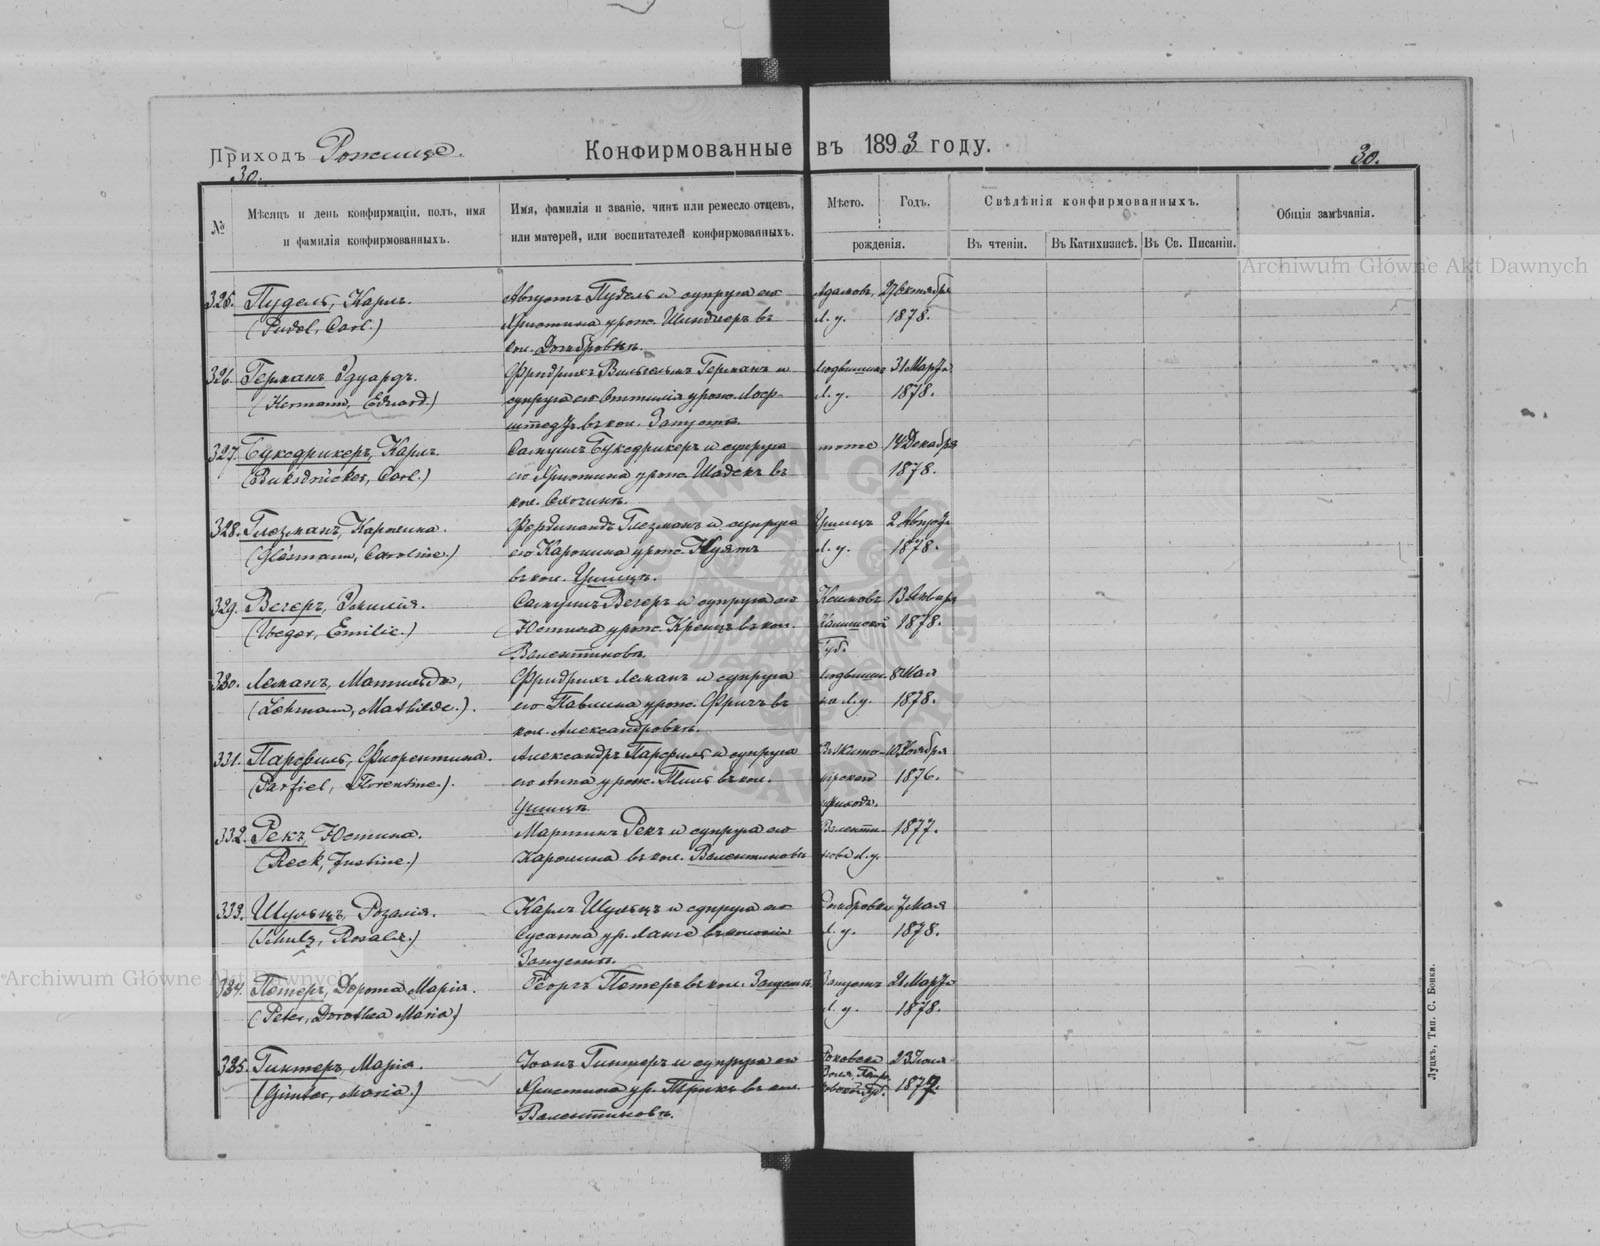 Приходъ Рожище.
Конфирмованные въ 1893 году.
30.
30.
№
Мѣсяцъ и день конфирмаціи, полъ, имя
и фамилія конфирмованныхъ.
Имя, фамилія и званіе, чинъ или ремесло отцевъ,
или матерей, или воспитателей конфирмованныхъ.
Мѣсто.
Годъ.
рожденія.
Свѣдѣнія конфирмованныхъ.
Въ чтеніи.
Въ Катихизисѣ.
Въ Св. Писаніи.
Общія замѣчанія.
Archiwum Główne Akt Dawnych
325. Пудель, Карлъ.
(Pudel, Carl.)
Августъ Пудель и супруга его
Христина урож. Шиндлеръ въ
кол. Домбровкѣ.
Адамовъ, 27 Октября
Л. у. 1878.
326. Германъ Эдуардъ.
(Hermann, Eduard.)
Фридрихъ Вильгельмъ Германъ и
супруга его Оттилія урож. Лоф-
штедъ въ кол. Запустъ.
Людвишино 31 Марта
Л. у. 1878.
327. Буксдрикеръ, Карлъ.
(Buksdrücker, Carl.)
Самуилъ Буксдрикеръ и супруга
его Христина урож. Шадекъ въ
кол.
тоже 14 Декабря
1878.
328. Глезманъ, Каролина.
(Glesmann, Caroline.)
Фердинандъ Глезманъ и супруга
его Каролина урож.
въ кол.
2
Л. у. 1878.
329. Вегеръ, Эмилія.
(Weger, Emilie.)
Самуилъ Вегеръ и супруга его
Юстина урож. Кренцъ въ кол.
Валентиновъ.
13 Января
Калишской 1878.
Губ.
330. Леманъ, Матильда,
(Lehmann, Mathilde.).
Фридрихъ Леманъ и супруга
его Павлина урож. Фричъ въ
кол. Александровкѣ.
Людвиши- 8 Мая
на Л. у. 1878.
331. Парфиль, Флорентина.
(Parfiel, Florentine.).
Александръ Парфиль и супруга
его Анна урож. Тиль въ кол.
Въ Жито- Ноября
мірскомъ 1876.
приходѣ.
332. Рекъ, Юстина.
(Reck, Justine.)
Мартинъ Рекъ и супруга его
Каролина въ кол. Валентиновъ
Валенти- 1877.
новъ Л. у.
333. Шульцъ, Розалія.
(Schulz, Rosalie.)
Карлъ Шульцъ и супруга его
Сусанна ур. Ланге въ колоніи
Запустъ.
Домбровка 7 Мая
Л. у. 1878.
Archiwum Główne Akt Dawnych
334. Петеръ, Дорота Марія.
(Peter, Dorothea Maria)
Георгъ Петеръ въ кол. Запустъ.
Запустъ 21 Марта
Л. у. 1878.
335. Гинтеръ, Марія.
(Günter, Maria.)
Іоанъ Гинтеръ и супруга его
Христина ур. въ кол.
Валентиновъ.
23 Іюля
Воля, 1877.
Луцкъ, Тип. С. Бонка.